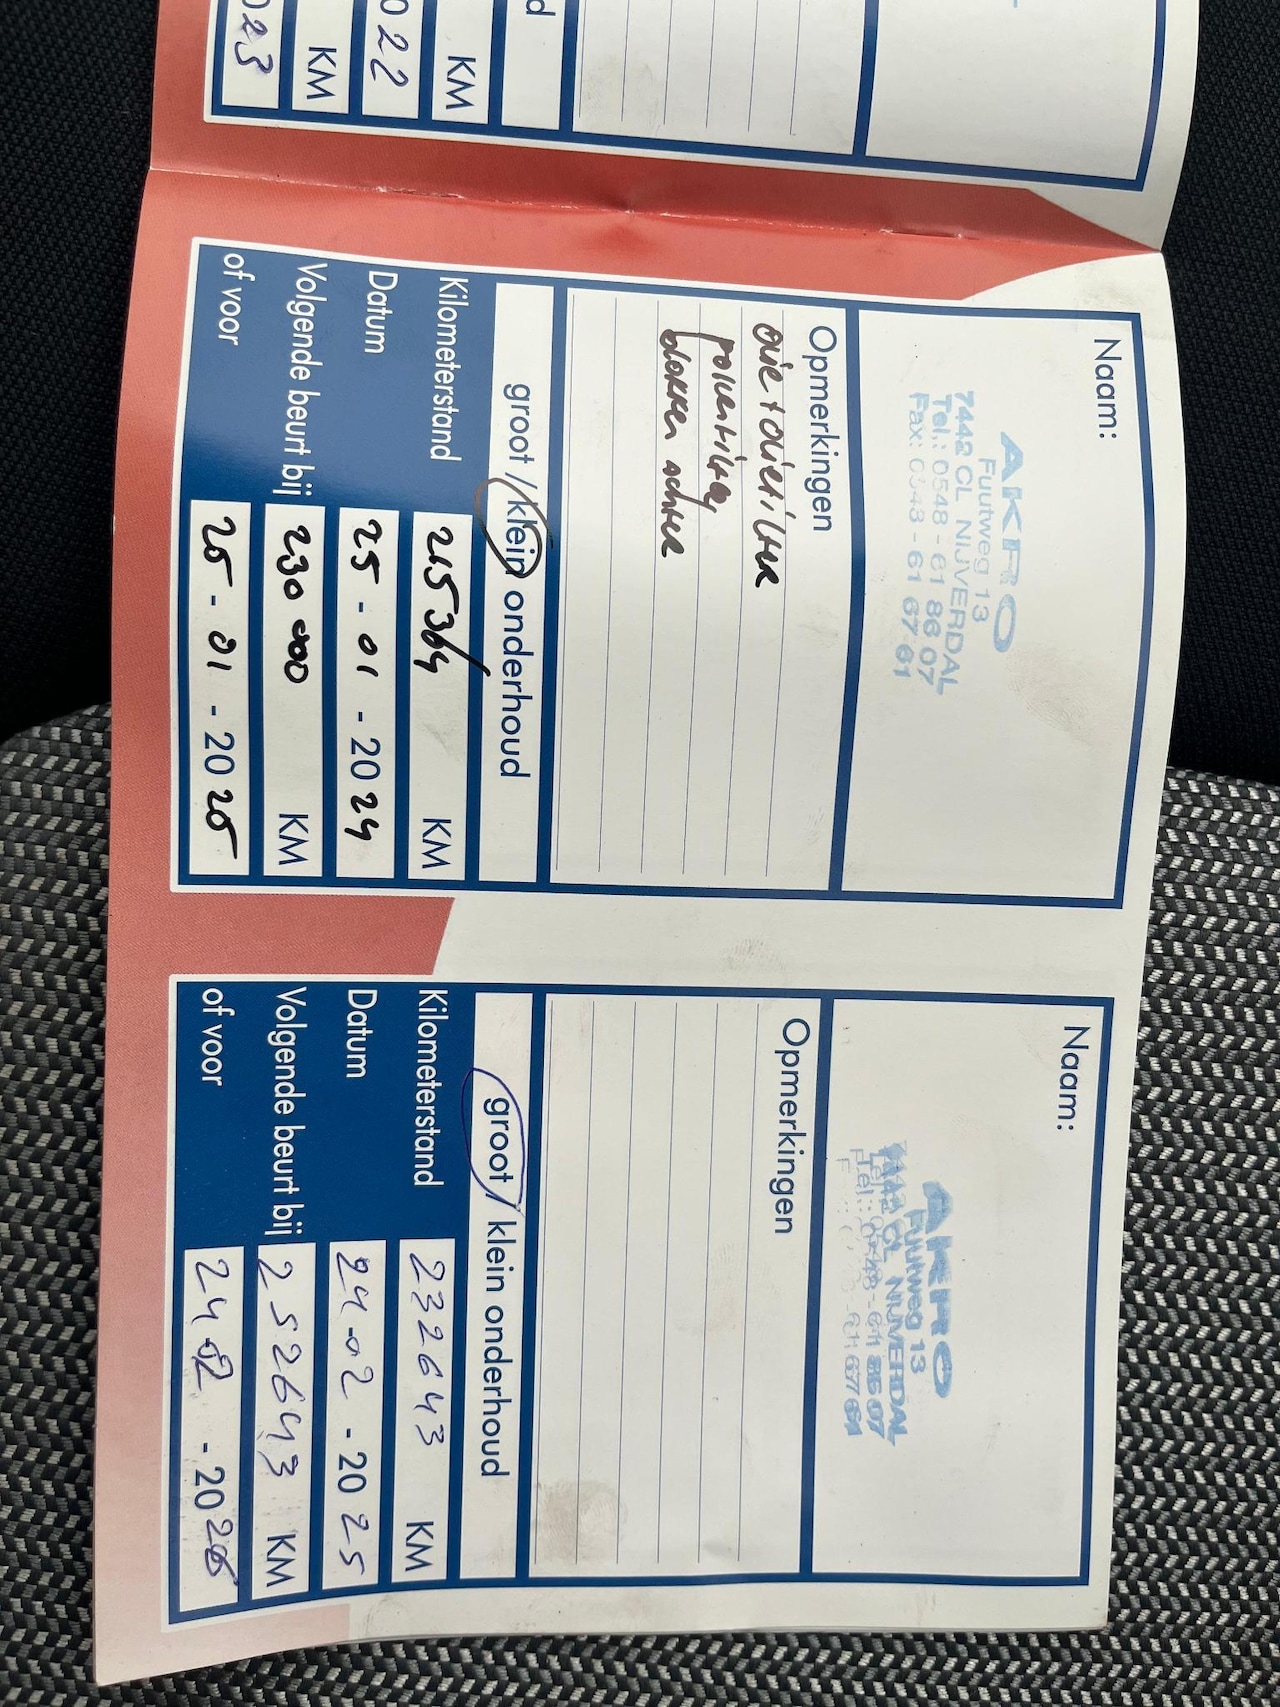 d
KM
022
KM
023
Naam:
AKRO
Fuutweg 13
7442 CL NIJVERDAL
Tel.: 0548 - 61 86 07
Fax: 0548 - 61 67 61
Opmerkingen
olie + oliefilter
pollenfilter
blokken achter
groot / klein onderhoud
Kilometerstand 215364 KM
Datum 25 - 01 - 2024
Volgende beurt bij 230 000 KM
of voor 25 - 01 - 2025
Naam:
AKRO
Fuutweg 13
7442 CL NIJVERDAL
Tel.: 0548 - 61 86 07
Opmerkingen
groot / klein onderhoud
Kilometerstand 232643 KM
Datum 24-02 - 2025
Volgende beurt bij 252643 KM
of voor 24-02 - 2026